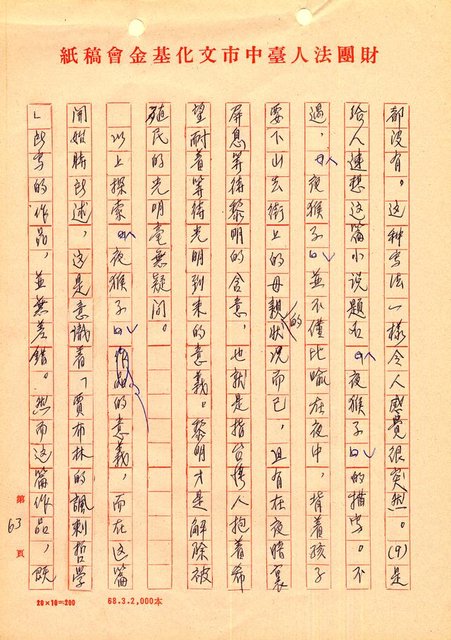 財團法人臺中市文化基金會稿紙
都沒有。這种写法一樣令人感覺很突然。(9)是
给人連想这篇小说題名《夜猴子》的描寫。不
過，《夜猴子》並不僅比喻在夜中，揹着孩子
要下山去街上的母親的狀況而已，且有在夜暗裏
屏息等待黎明的含意，也就是指台灣人抱着希
望耐着等待光明到來的意義。黎明才是解除被
殖民的光明毫無疑问。
以上探索《夜猴子》作品的意義，而在这篇
開始時所述，这是意識着「賈布林的諷刺哲學
」所写的作品，並無差錯。然而这篇作品，既
第63頁
20×10=200
68.3.2,000本